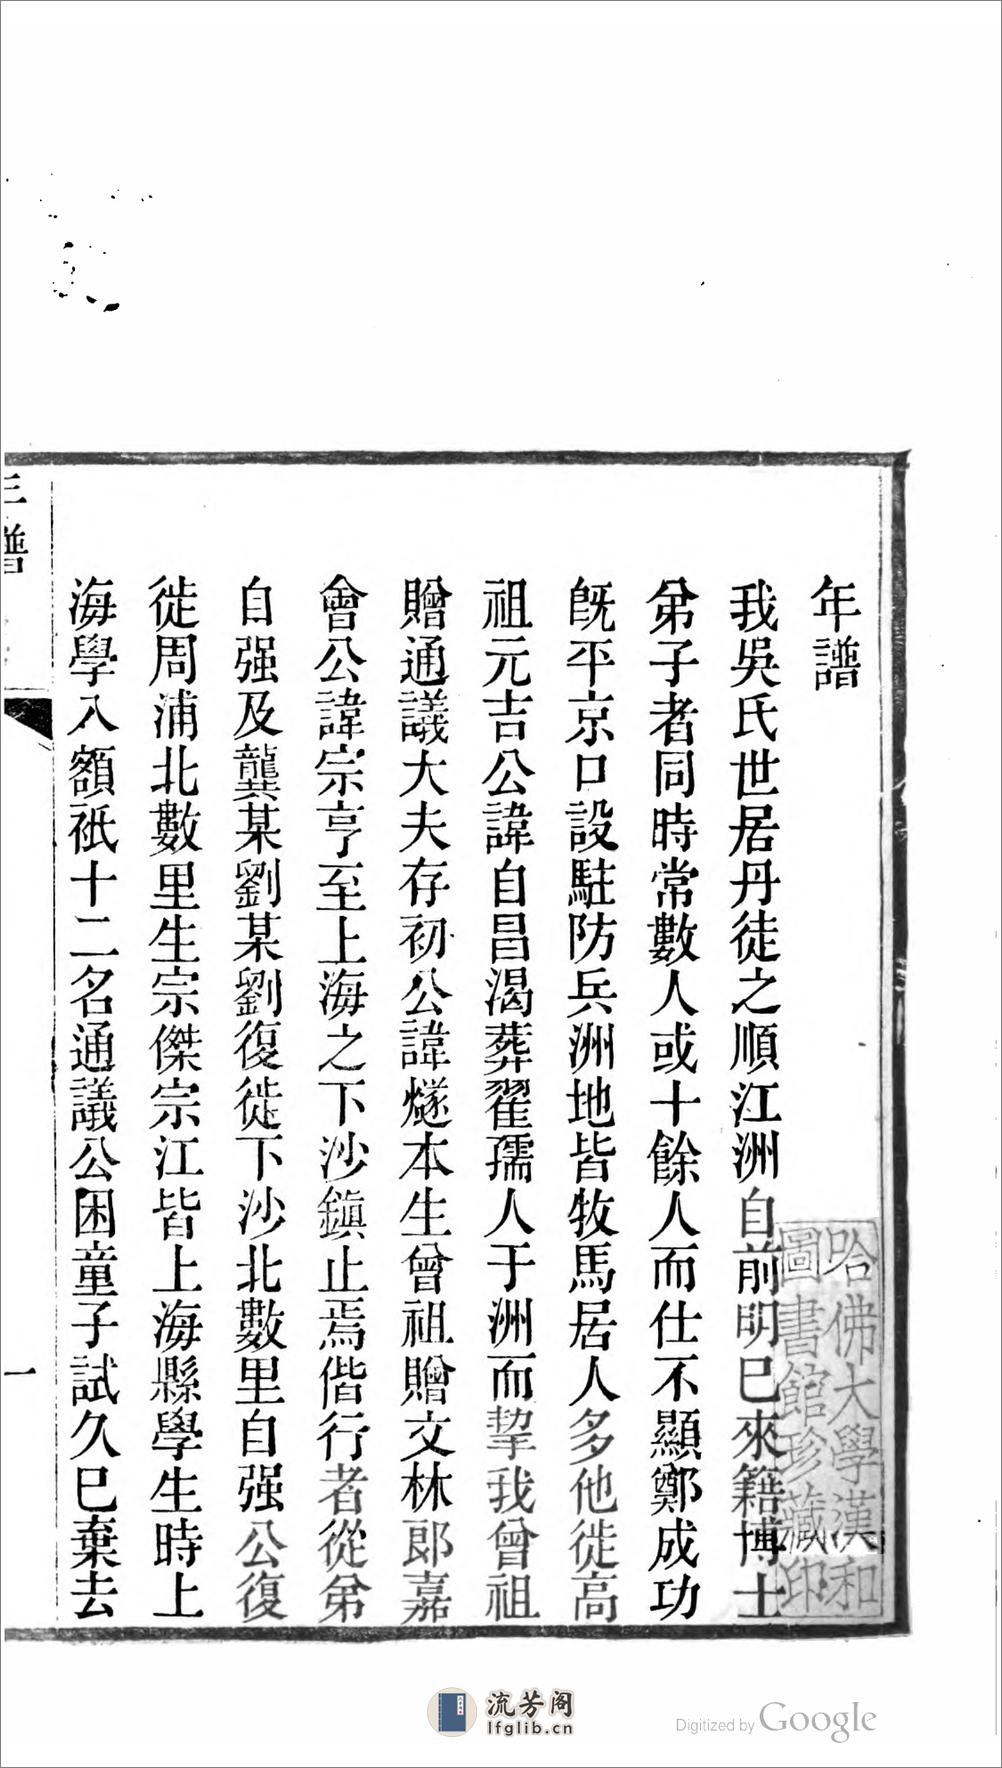 年譜
我吳氏世居丹徒之順江洲自前明已來籍博士
弟子者同時常數人或十餘人而仕不顯鄭成功
旣平京口設駐防兵洲地皆牧馬居人多他徙高
祖元吉公諱自昌渴葬翟孺人于洲而挈我曾祖
贈通議大夫存初公諱燧本生曾祖贈文林郎嘉
會公諱宗亨至上海之下沙鎭止焉偕行者從弟
自强及龔某劉某劉復徙下沙北數里自强公復
徙周浦北數里生宗傑宗江皆上海縣學生時上
海學入額祇十二名通議公困童子試久已棄去
年譜
一
哈佛大學漢和
圖書館珍藏印
流芳阁
lfglib.cn
Digitized by Google